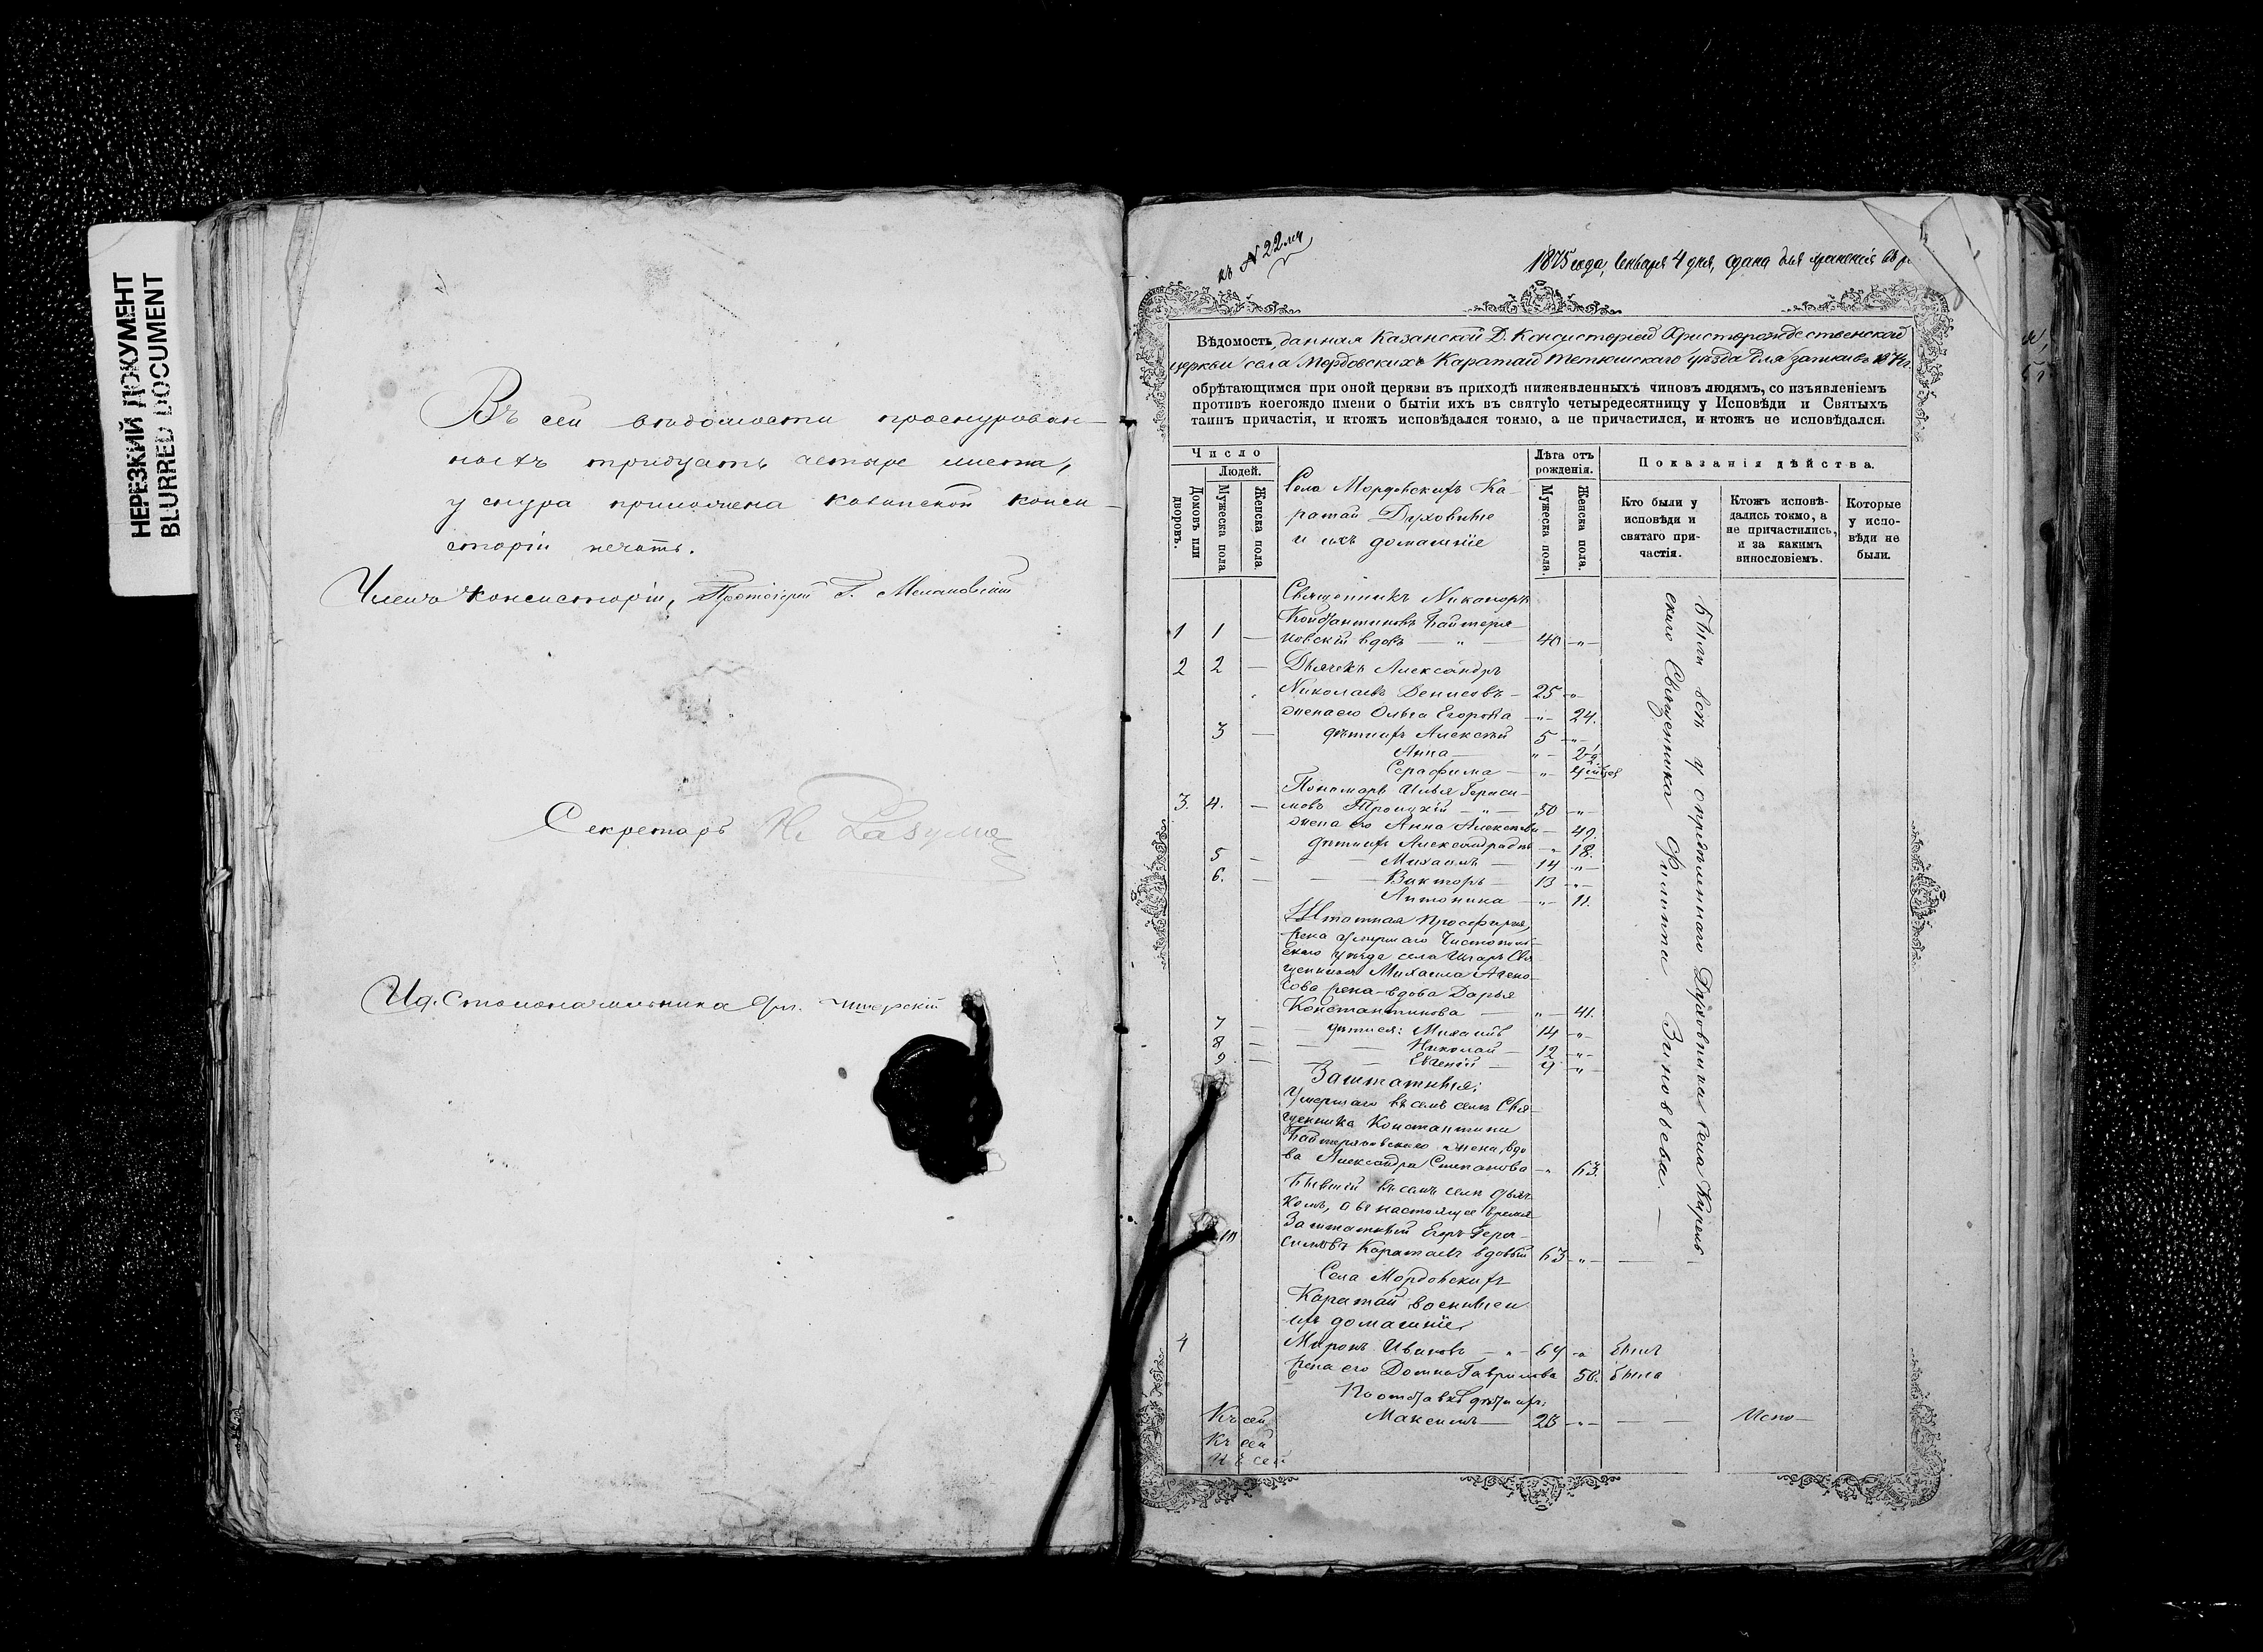 НЕРЕЗКИЙ ДОКУМЕНТ
BLURRED DOCUMENT
Въ сей вѣдомости прошнурован-
ныхъ тридцать четыре листа,
у шнура приложена казанской конси-
сторіи печать.
Членъ Консисторіи, Протоіерей
Секретарь
Ид. Столоначальника
къ N 22му
1875 года, Января 4 дня, сдана для храненія въ
Вѣдомость, данная Казанской Д. Консисторіей Христорождественской
церкви села Мордовскихъ Каратай Тетюшскаго уѣзда для записи въ 1874 г.
обрѣтающимся при оной церкви въ приходѣ нижеявленныхъ чиновъ людямъ, со изъявленіемъ
противъ коегождо имени о бытіи ихъ въ святую четыредесятницу у Исповѣди и Святыхъ
таинъ причастія, и ктожъ исповѣдался токмо, а не причастился, и ктожъ не исповѣдался.
Число
Домовъ или дворовъ.
Людей.
Мужеска пола.
Женска пола.
Села Мордовскихъ Ка-
ратай Духовные
и ихъ домашніе
Лѣта отъ рожденія.
Мужеска пола.
Женска пола.
Показанія дѣйства.
Кто были у исповѣди и святаго причастія.
Ктожъ исповѣдались токмо, а не причастились, и за какимъ винословіемъ.
Которые у исповѣди не были.
Священникъ Никаноръ
Константиновъ Байтеря-
1 1 — новскій вдовъ — " — 40 — " —
2 2 — Дьячекъ Александръ
Николаевъ Денисовъ — 25 — " —
жена его Ольга Егорова — " — 24.
3 — дѣти ихъ Алексѣй 5 — " —
Анна — " — 2½
Серафима — " —
Пономарь Илья Гераси-
3. 4. — мовъ Троицкій — " — 50 — " —
жена его Анна Алексѣева — 49.
дѣти ихъ Александра — " 18.
5 — — Михаилъ — 14 — " —
6. — — Викторъ — 13 — " —
Антонина — " — 11.
Штатная просфирня,
умершаго Чистополь-
скаго уѣзда села Свя-
щенника Михаила
жена-вдова Дарья
Константинова — " — 41.
7 — дѣти ея: Михаилъ 14 — " —
8 — — Николай — 12 — " —
9. — — Евгеній — 9 — " —
Заштатные:
Умершаго въ семъ селѣ Свя-
щенника Константина
Байтеряковскаго жена, вдо-
ва Александра Степанова — " 63.
Бывшій въ семъ селѣ дьяч-
комъ, а въ настоящее время
Заштатный Егоръ Гера-
10 симовъ Каратаевъ вдовый 63 — " — —
Были всѣ у опредѣленнаго Духовника села
скаго Священника Филиппа Зиновьева. —
Села Мордовскихъ
Каратай военные и
ихъ домашніе
4 Миронъ Ивановъ — " — 64 — " былъ
жена его Домна Гаврилова 50. была
По отставкѣ дѣти ихъ:
Максимъ — 28 — " — — — Испо —
Къ сей
Къ сей
Къ сей